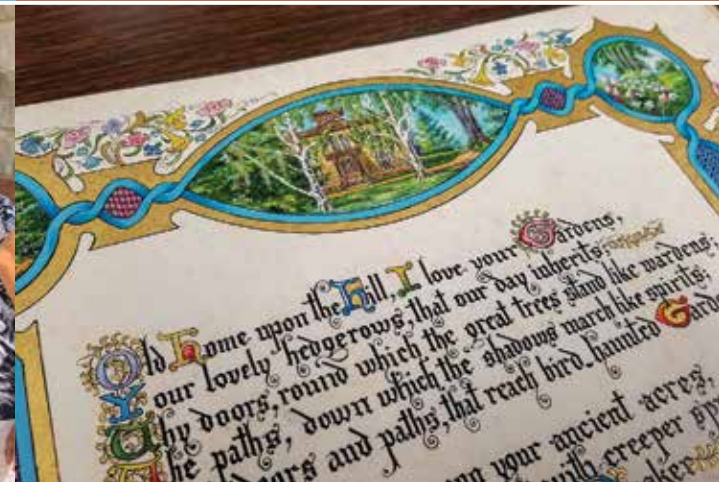 Old Home upon the Hill, I love your Gardens,
Your lovely hedgerows, that our day inherits;
Thy doors, round which the great trees stand like wardens,
The paths, down which the shadows march like spirits;
doors and paths, that reach bird haunted Garde
your ancient acres,
with creeper